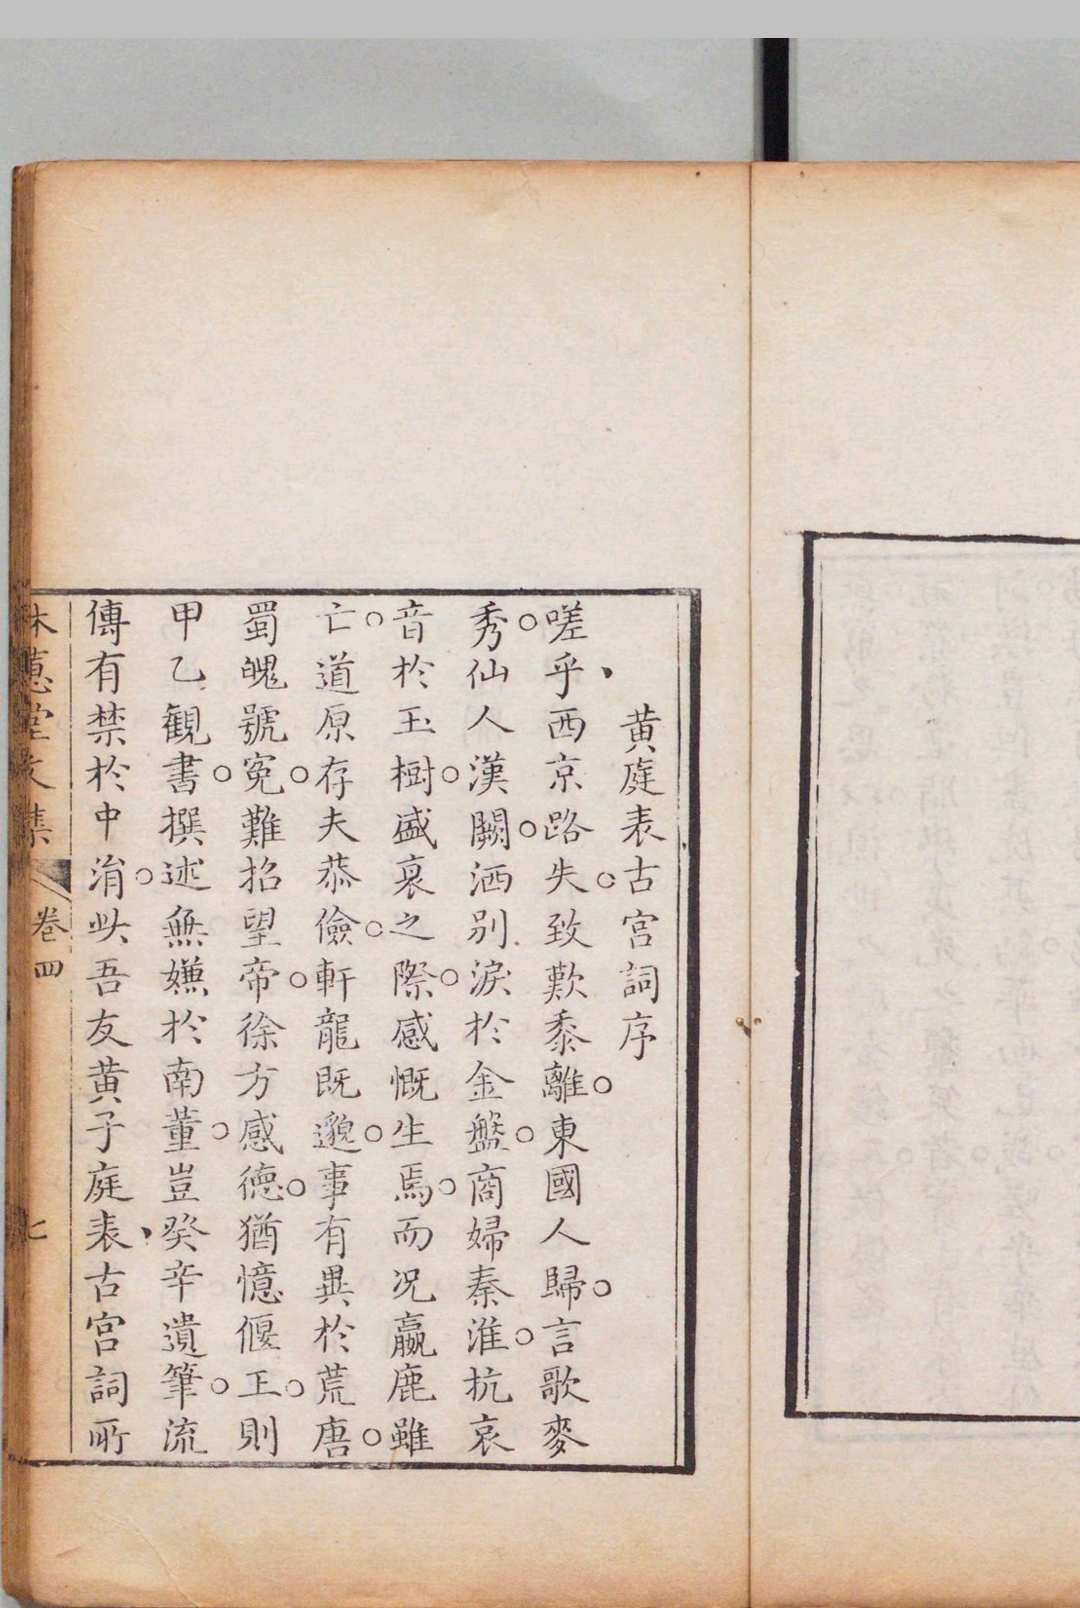 黃庭表古宮詞序
嗟乎西京路失致歎黍離東國人歸言歌麥
秀仙人漢闕洒別淚於金盤商婦秦淮抗哀
音於玉樹盛衰之際感慨生焉而况嬴鹿雖
亡道原存夫恭儉軒龍既邈事有異於荒唐
蜀魄號寃難招望帝徐方感德猶憶偃王則
甲乙観書撰述無嫌於南董豈癸辛遺筆流
傳有禁於中涓此吾友黃子庭表古宮詞所
林蕙堂文集
卷四
七